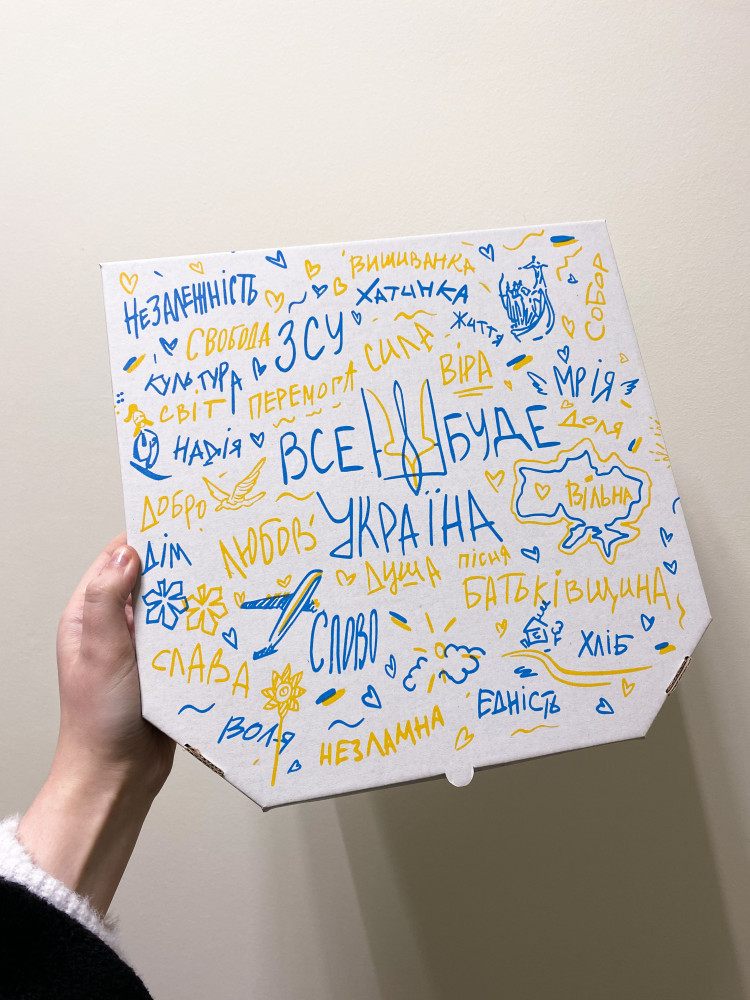 ВИШИВАНКА
НЕЗАЛЕЖНІСТЬ
ХАТИНКА
СОБОР
СВОБОДА
ЗСУ
ЖИТТЯ
СИЛА
КУЛЬТУРА
ВІРА
МРІЯ
СВІТ
ПЕРЕМОГА
ДОЛЯ
НАДІЯ
ВСЕ БУДЕ
УКРАЇНА
ВІЛЬНА
ДОБРО
ДІМ
ЛЮБОВ
ДУША
ПІСНЯ
БАТЬКІВЩИНА
СЛОВО
ХЛІБ
СЛАВА
ЄДНІСТЬ
ВОЛЯ
НЕЗЛАМНА